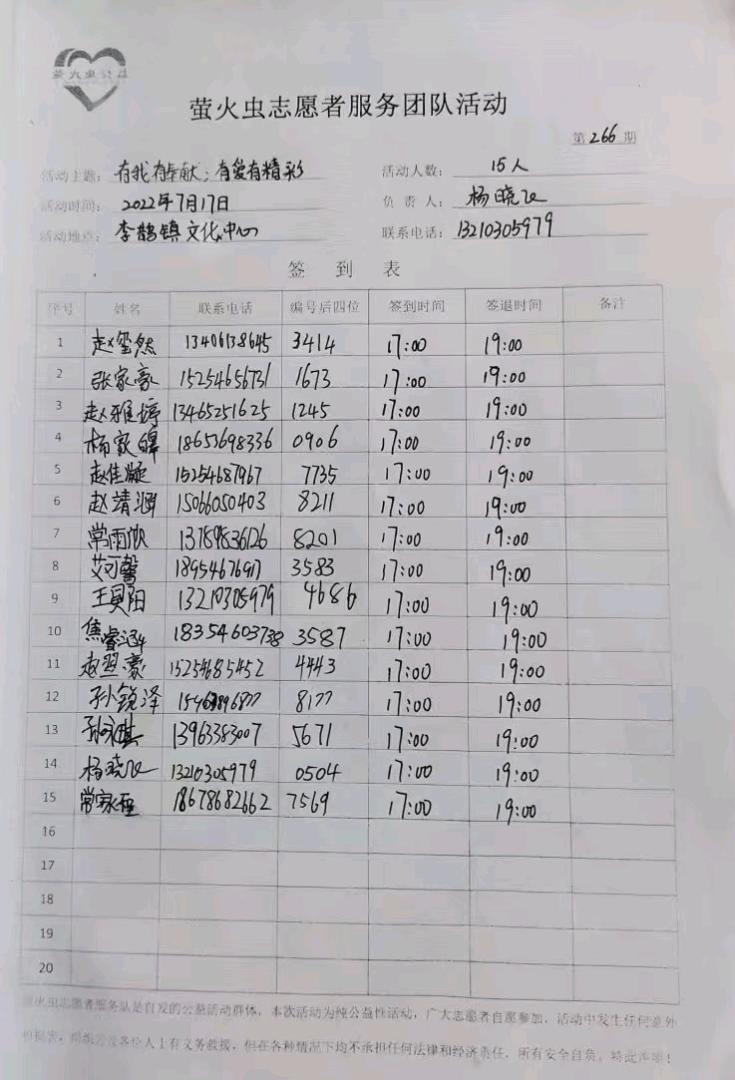 萤火虫公益
萤火虫志愿者服务团队活动
第 266 期
活动主题: 有我有奉献;有爱有精彩 活动人数: 15人
活动时间: 2022年7月17日 负 责 人: 杨晓飞
活动地点: 李鹊镇文化中心 联系电话: 13210305979
签 到 表
序号 姓名 联系电话 编号后四位 签到时间 签退时间 备注
1 赵玺然 13406138645 3414 17:00 19:00
2 张家豪 15254656731 1673 17:00 19:00
3 赵雅婷 13465251625 1245 17:00 19:00
4 杨家皞 18653698336 0906 17:00 19:00
5 赵佳凝 15254687967 7735 17:00 19:00
6 赵靖涵 15066050403 8211 17:00 19:00
7 常雨欣 8201 17:00 19:00
8 艾可馨 18954676917 3583 17:00 19:00
9 王贝阳 13210305979 4686 17:00 19:00
10 焦睿涵 18354603738 3587 17:00 19:00
11 赵翌豪 15254685452 4443 17:00 19:00
12 孙锐泽 8177 17:00 19:00
13 孙永淇 13963383007 5671 17:00 19:00
14 杨晓飞 13210305979 0504 17:00 19:00
15 常家 18678682662 7569 17:00 19:00
16
17
18
19
20
萤火虫志愿者服务队是自发的公益活动群体,本次活动为纯公益性活动,广大志愿者自愿参加,活动中发生任何意外
和损害,组织方及各位人士有义务救援,但在各种情况下均不承担任何法律和经济责任,所有安全自负。特此声明!